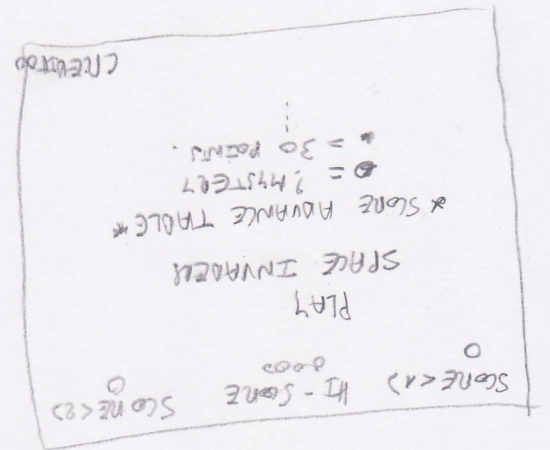 SCORE<1> HI-SCORE SCORE<2>
0 0000 0
PLAY
SPACE INVADERS
* SCORE ADVANCE TABLE *
= ? MYSTERY
= 30 POINTS.